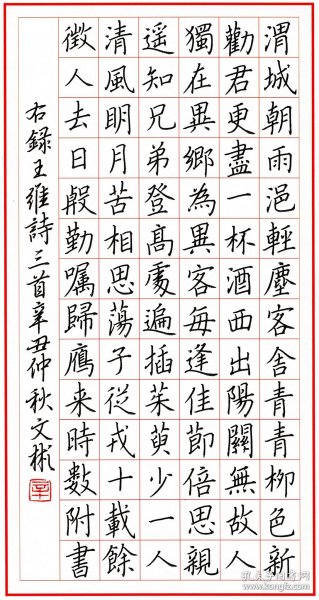 渭城朝雨浥輕塵客舍青青柳色新
勸君更盡一杯酒西出陽關無故人
獨在異鄉為異客每逢佳節倍思親
遥知兄弟登高處遍插茱萸少一人
清風明月苦相思蕩子從戎十載餘
徵人去日殷勤嘱歸鴈来時數附書
右録王維詩三首辛丑仲秋文彬